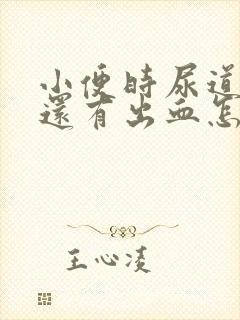 小便時尿道
還有出血怎
王心凌